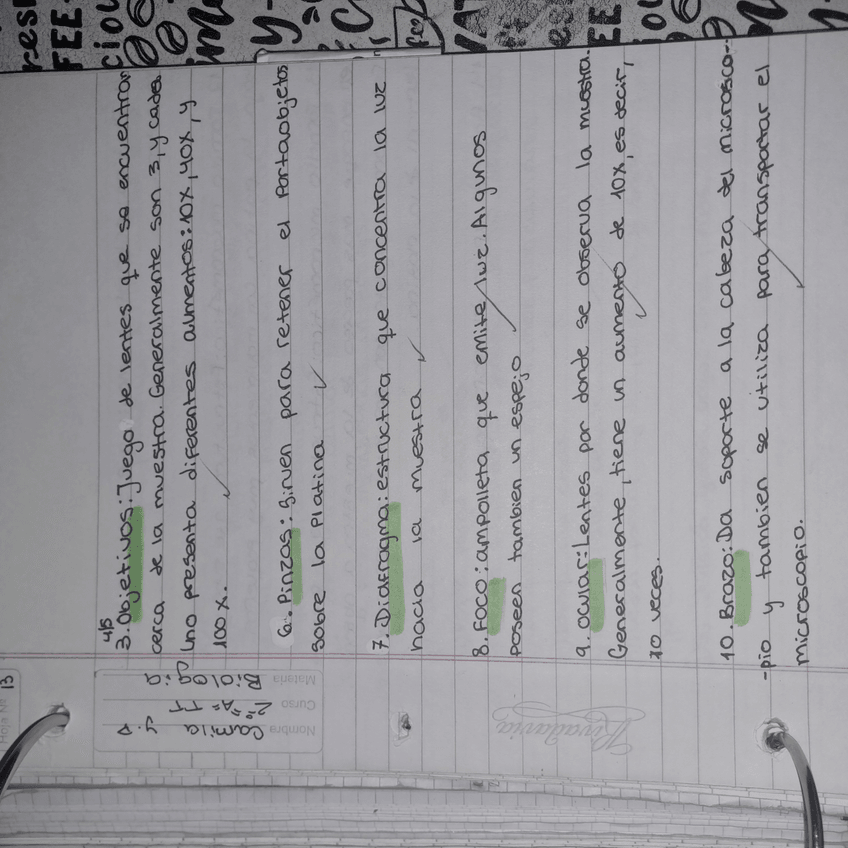 4/5
3. Objetivos: Juego de lentes que se encuentran
cerca de la muestra. Generalmente son 3, y cada
uno presenta diferentes aumentos: 10x, 40x, y
100x.
6. Pinzas: sirven para retener el portaobjetos
sobre la platina
7. Diafragma: estructura que concentra la luz
hacia la muestra
8. Foco: ampolleta que emite luz. Algunos
poseen tambien un espejo
9. Ocular: Lentes por donde se observa la muestra.
Generalmente, tiene un aumento de 10x, es decir,
10 veces.
10. Brazo: Da soporte a la cabeza del microsco-
-pio y tambien se utiliza para transportar el
microscopio.
Hoja No 13
Nombre Camila Y.D
Curso 2º "A" TT
Materia Biología
Rivadavia